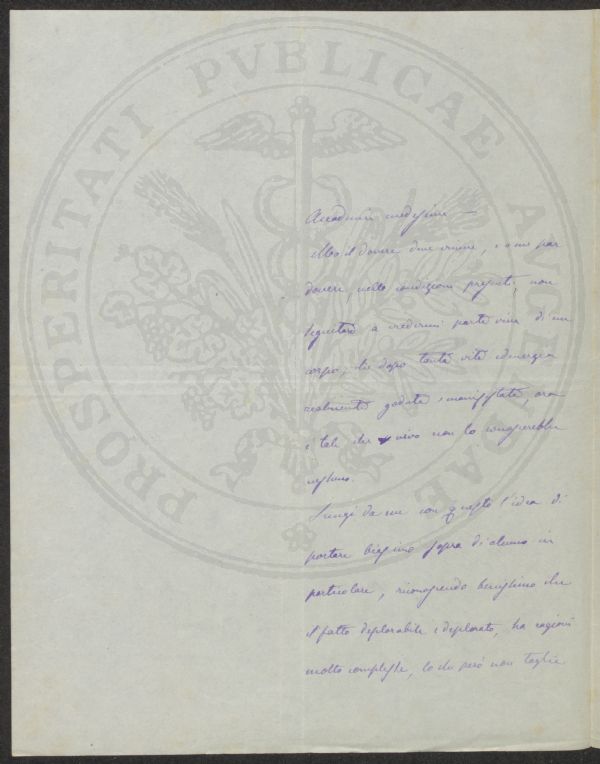 PROSPERITATI PVBLICAE AVGENDAE
Accademia medesima —
Ma il dovere d'una, come par
dovere, nelle condizioni presenti, non
seguitare a credermi parte viva di un
corpo, che dopo tanta vita ed energia
realmente godute e manifestate ora
è tale che vivo non lo
nessuno.
Lungi da me con questo l'idea di
portare biasimo sopra di alcuno in
particolare, riconoscendo benissimo che
il fatto deplorabile e deplorato, ha ragioni
molto complesse, lo che però non toglie